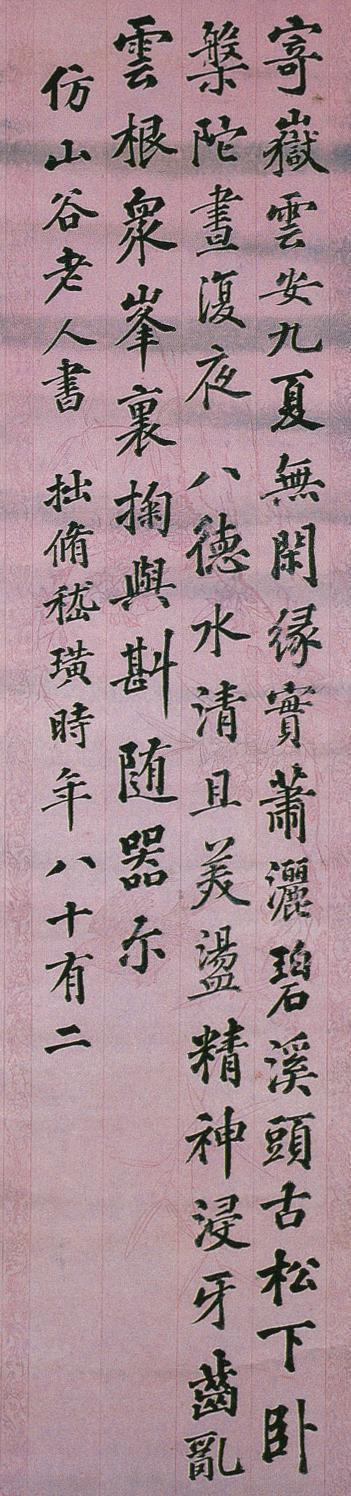 寄嶽雲安九夏無閑緣實蕭灑碧溪頭古松下卧
槃陀晝復夜八德水清且美盪精神浸牙齒亂
雲根衆峯裏掬與斟随器尔
仿山谷老人書 拙脩嵇璜時年八十有二